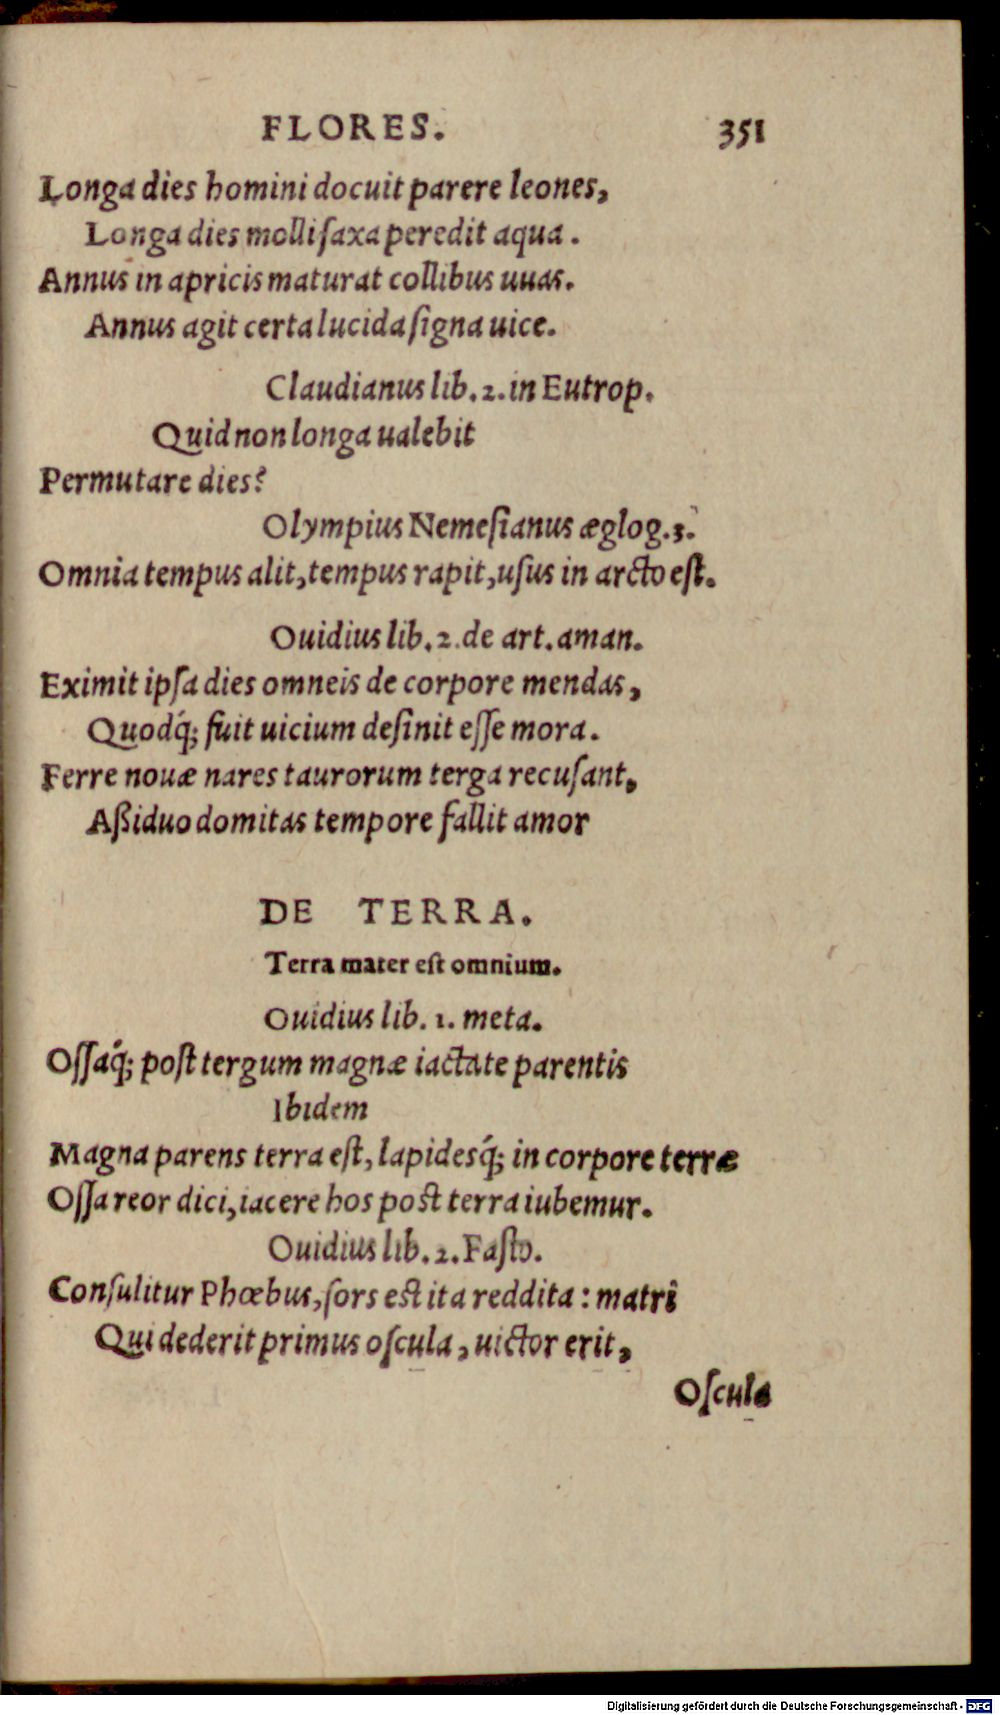 FLORES. 351
Longa dies homini docuit parere leones,
Longa dies molli ſaxa peredit aqua.
Annus in apricis maturat collibus uuas.
Annus agit certa lucida ſigna uice.
Claudianus lib. 2. in Eutrop.
Quid non longa ualebit
Permutare dies?
Olympius Nemeſianus æglog. 3.
Omnia tempus alit, tempus rapit, uſus in arcto eſt.
Ouidius lib. 2. de art. aman.
Eximit ipſa dies omneis de corpore mendas,
Quodq́; fuit uicium deſinit eſſe mora.
Ferre nouæ nares taurorum terga recuſant,
Aßiduo domitas tempore fallit amor
DE TERRA.
Terra mater eſt omnium.
Ouidius lib. 1. meta.
Oſſaq́; poſt tergum magnæ iactate parentis
Ibidem
Magna parens terra eſt, lapidesq́; in corpore terræ
Oſſa reor dici, iacere hos poſt terra iubemur.
Ouidius lib. 2. Faſto.
Conſulitur Phœbus, ſors eſt ita reddita: matri
Qui dederit primus oſcula, uictor erit,
Oſcula
Digitalisierung gefördert durch die Deutsche Forschungsgemeinschaft - DFG